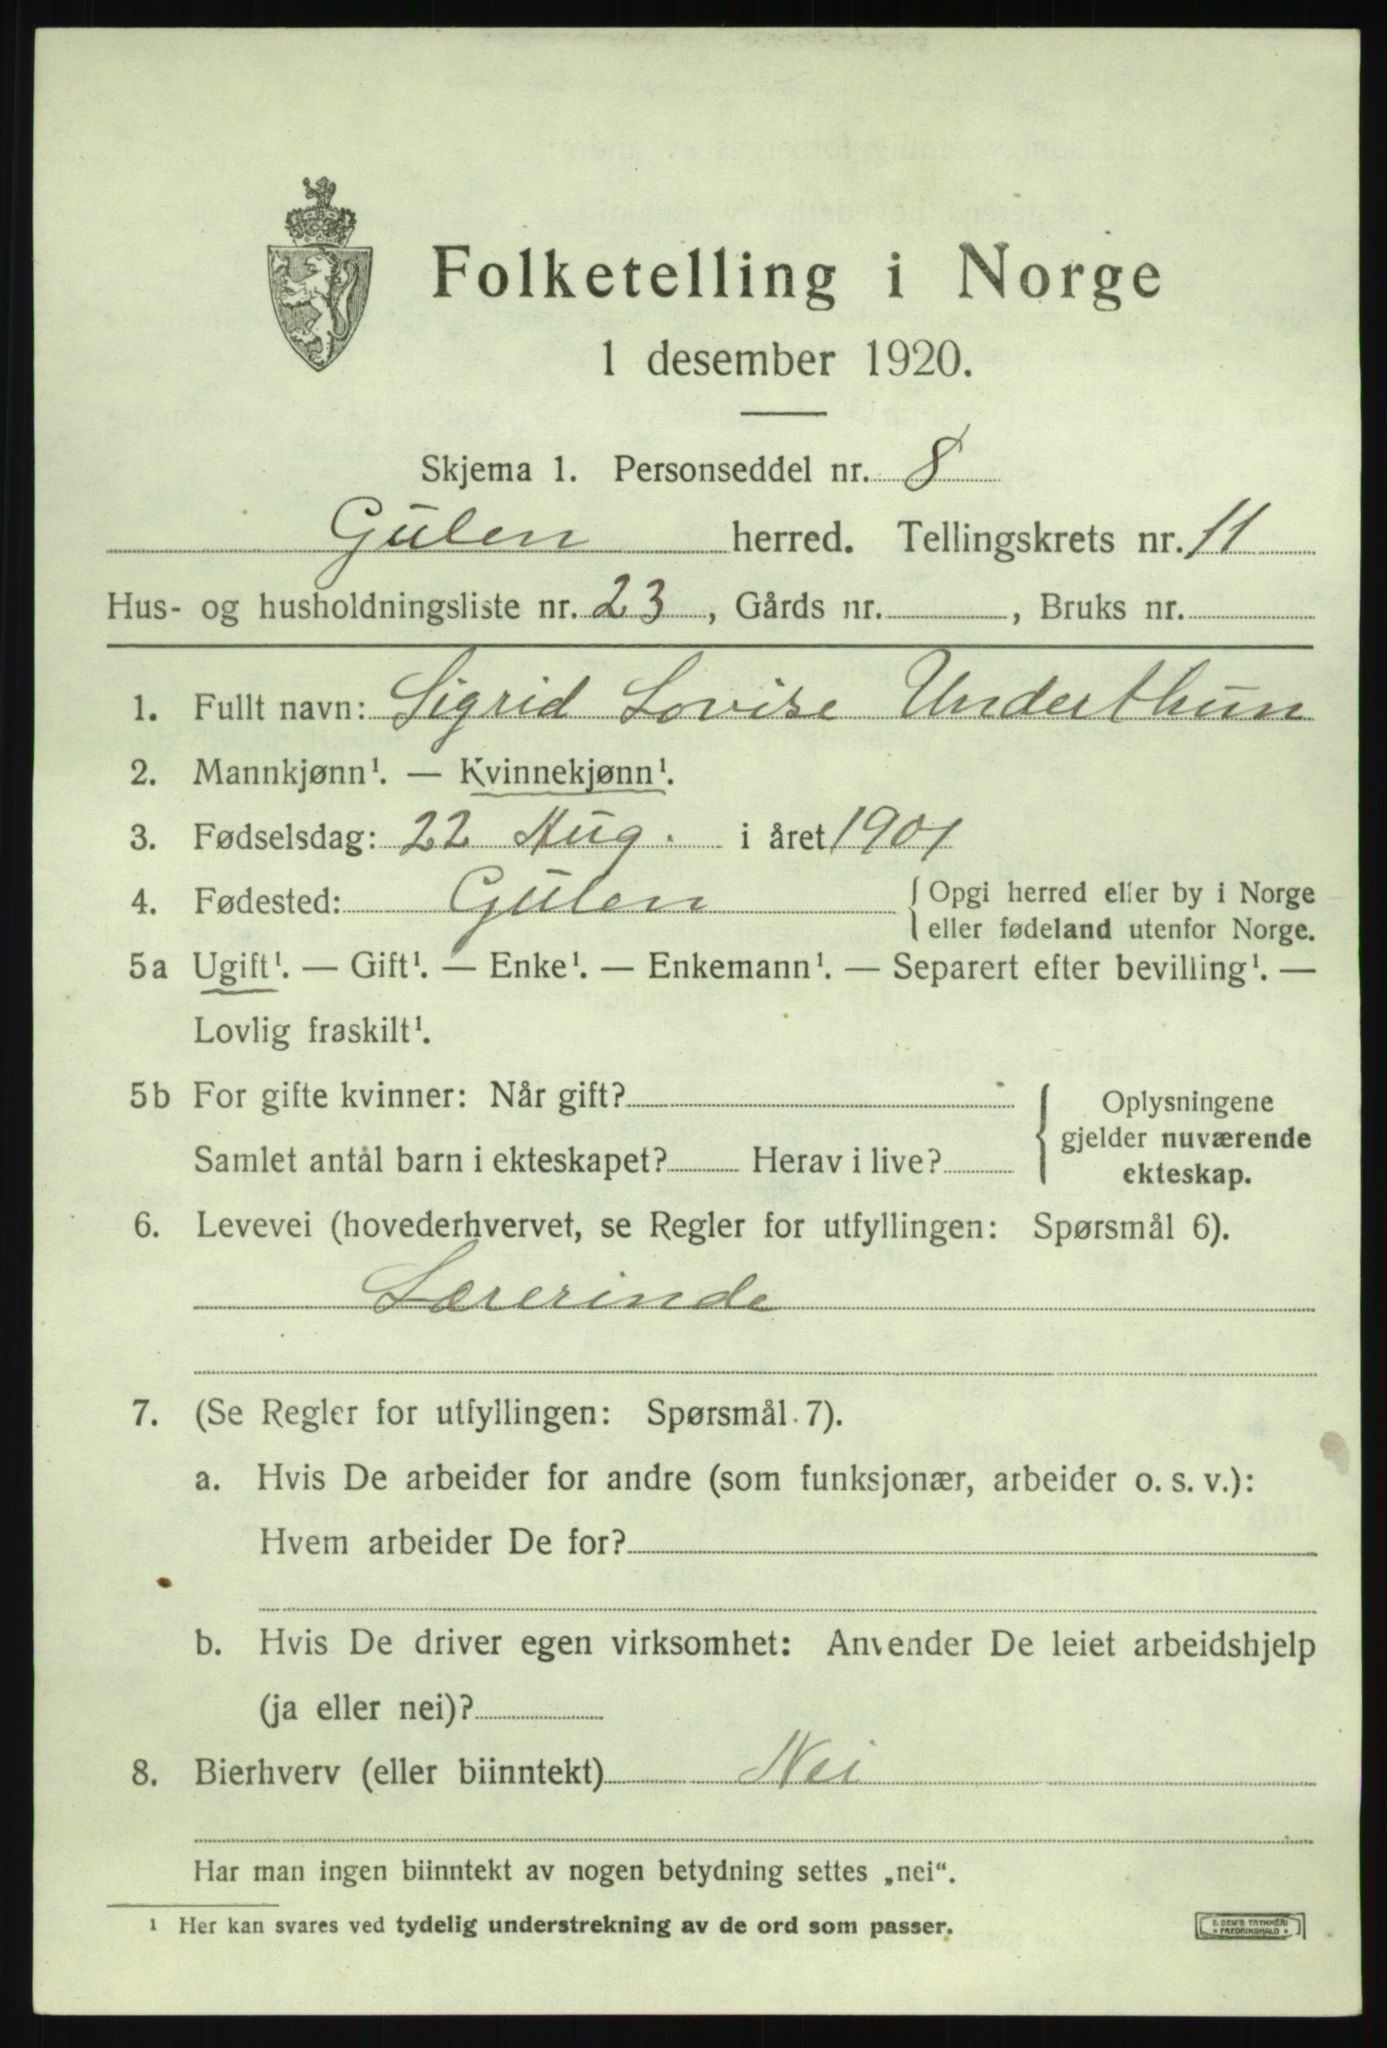 Folketelling i Norge
1 desember 1920.
Skjema 1. Personseddel nr. 8
Gulen herred. Tellingskrets nr. 11
Hus- og husholdningsliste nr. 23, Gårds nr. , Bruks nr.
1. Fullt navn: Sigrid Lovise Underthun
2. Mannkjønn¹. — Kvinnekjønn¹.
3. Fødselsdag: 22 Aug. i året 1901
4. Fødested: Gulen { Opgi herred eller by i Norge
eller fødeland utenfor Norge.
5a Ugift¹. — Gift¹. — Enke¹. — Enkemann¹. — Separert efter bevilling¹. —
Lovlig fraskilt¹.
5b For gifte kvinner: Når gift? { Oplysningene
gjelder nuværende
Samlet antål barn i ekteskapet? Herav i live?
ekteskap.
6. Levevei (hovederhvervet, se Regler for utfyllingen: Spørsmål 6).
Lærerinde
7. (Se Regler for utfyllingen: Spørsmål 7).
a. Hvis De arbeider for andre (som funksjonær, arbeider o. s. v.):
Hvem arbeider De for?
b. Hvis De driver egen virksomhet: Anvender De leiet arbeidshjelp
(ja eller nei)?
8. Bierhverv (eller biinntekt) Nei
Har man ingen biinntekt av nogen betydning settes „nei“.
¹ Her kan svares ved tydelig understrekning av de ord som passer.
TRYKKERI
FREDRIKSHALD